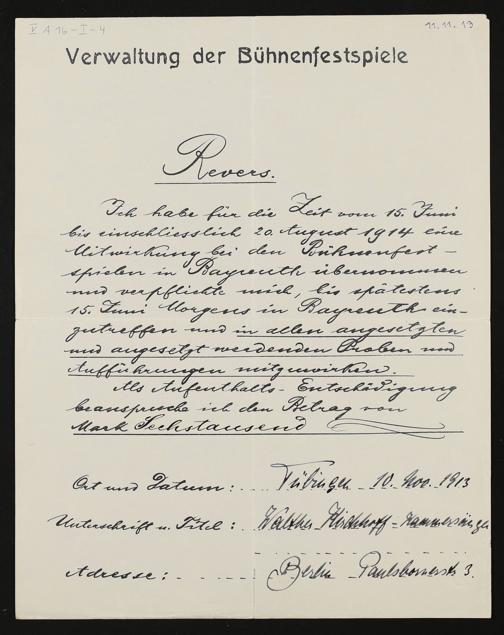 V A 16-I-4
11.11.13
Verwaltung der Bühnenfestspiele
Revers.
Ich habe für die Zeit vom 15. Juni
bis einschliesslich 20. August 1914 eine
Mitwirkung bei den Bühnenfest-
spielen in Bayreuth übernommen
und verpflichte mich, bis spätestens
15. Juni Morgens in Bayreuth ein-
zutreffen und in allen angesetzten
und angesetzt werdenden Proben und
Aufführungen mitzuwirken.
Als Aufenthalts-Entschädigung
beanspruche ich den Betrag von
Mark Sechstausend
Ort und Datum: Tübingen 10. Nov. 1913
Unterschrift u. Titel: Walther Kirchhoff - Kammersänger
Adresse: Berlin Paulsbornerstr 3.